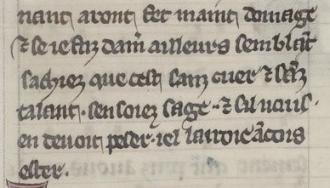 nant aront fet maint domage
⁊ se ie faz dam̄ ailleurs semblāt
sachiez que cest sanz cuer ⁊ sāz
talant . sen soiez sage . ⁊ sil nous .
en deuoit peser . iel lairoie ācois
ester .